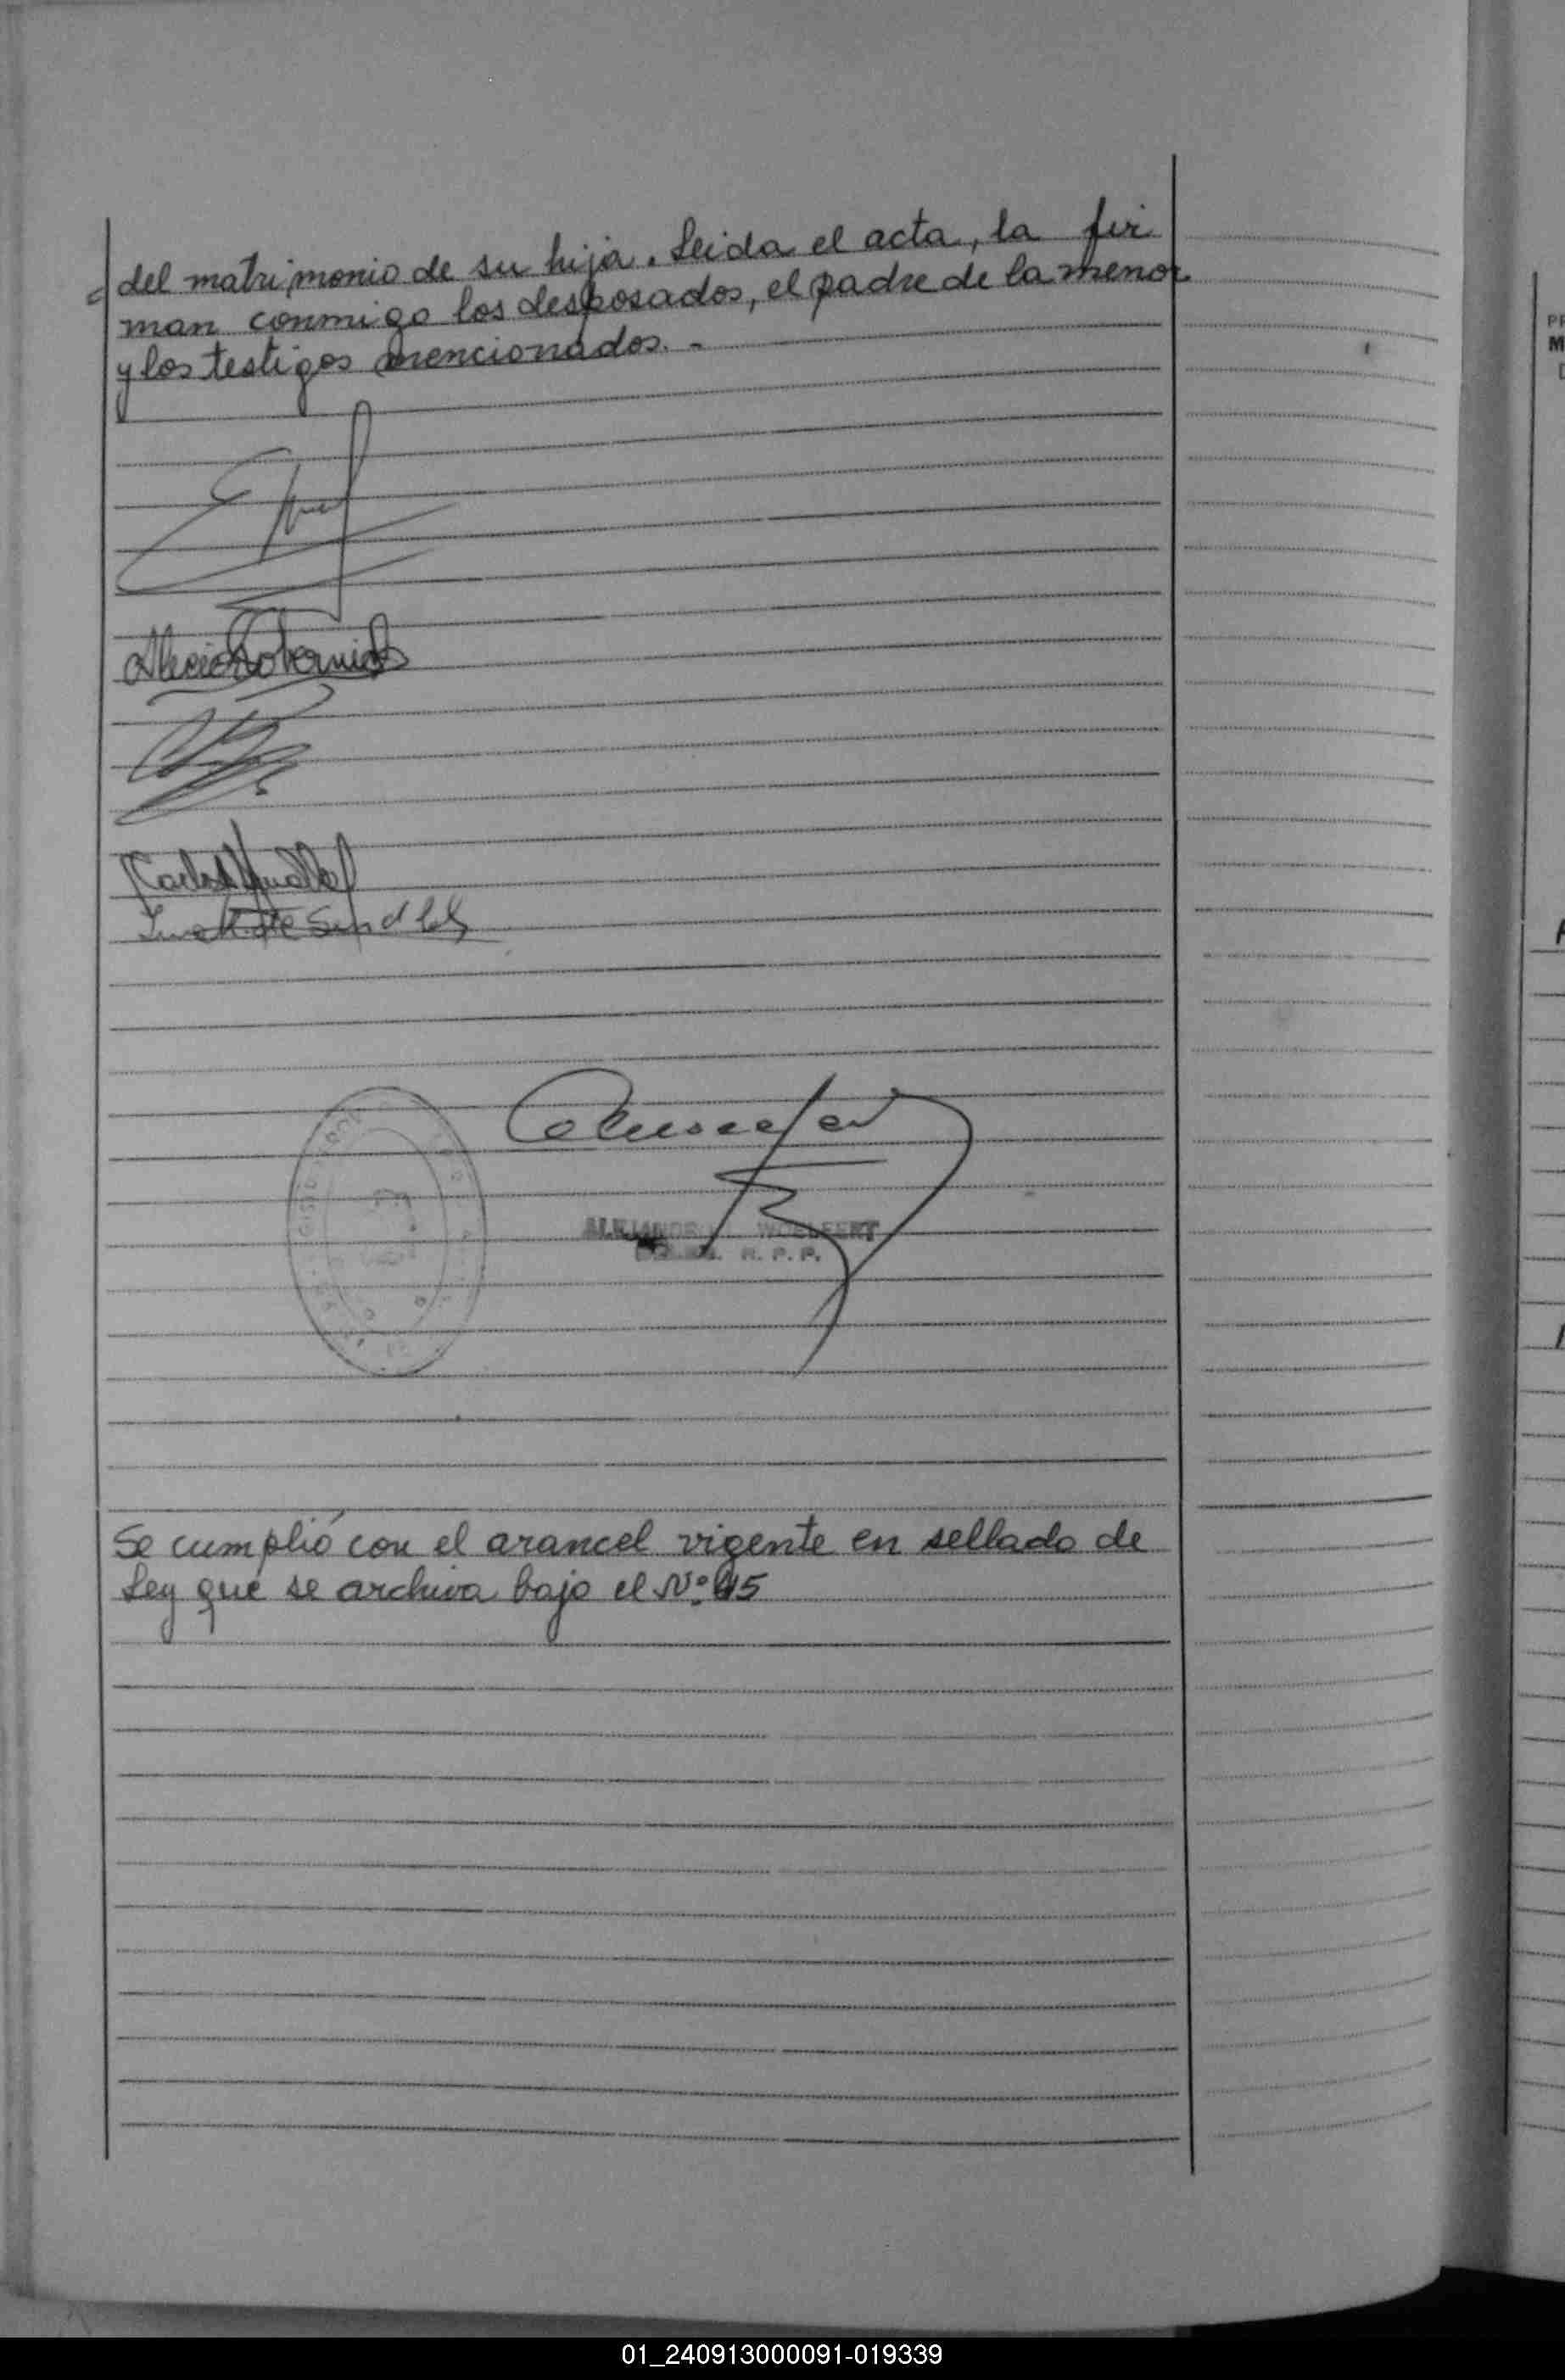 del matrimonio de su hija. Leida el acta, la fir
man conmigo los desposados, el padre de la menor
y los testigos mencionados. -
ALEJANDRO WOELFERT
R. P. P.
Se cumplió con el arancel vigente en sellado de
Ley que se archiva bajo el Nº 45
01_240913000091-019339